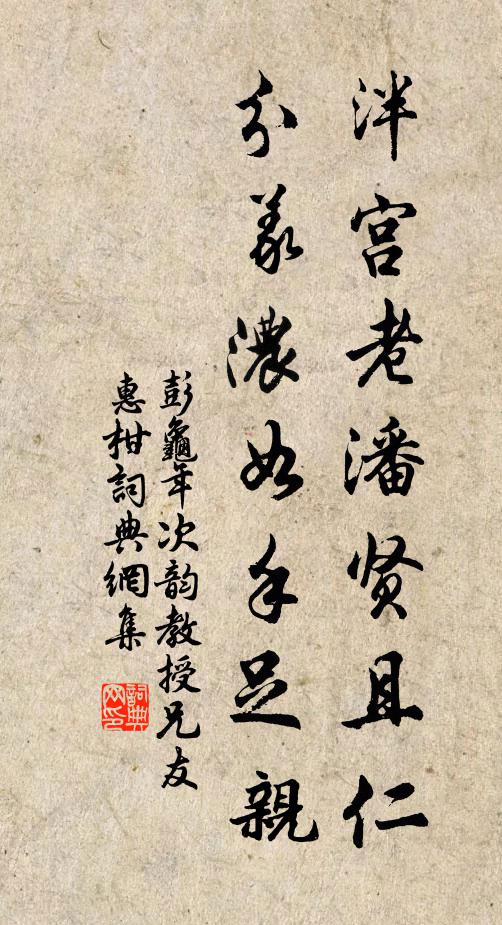 泮宫老潘贤且仁
分義濃如手足親
彭龜年次韵教授兄友
惠柑詞典網集
詞典
网印